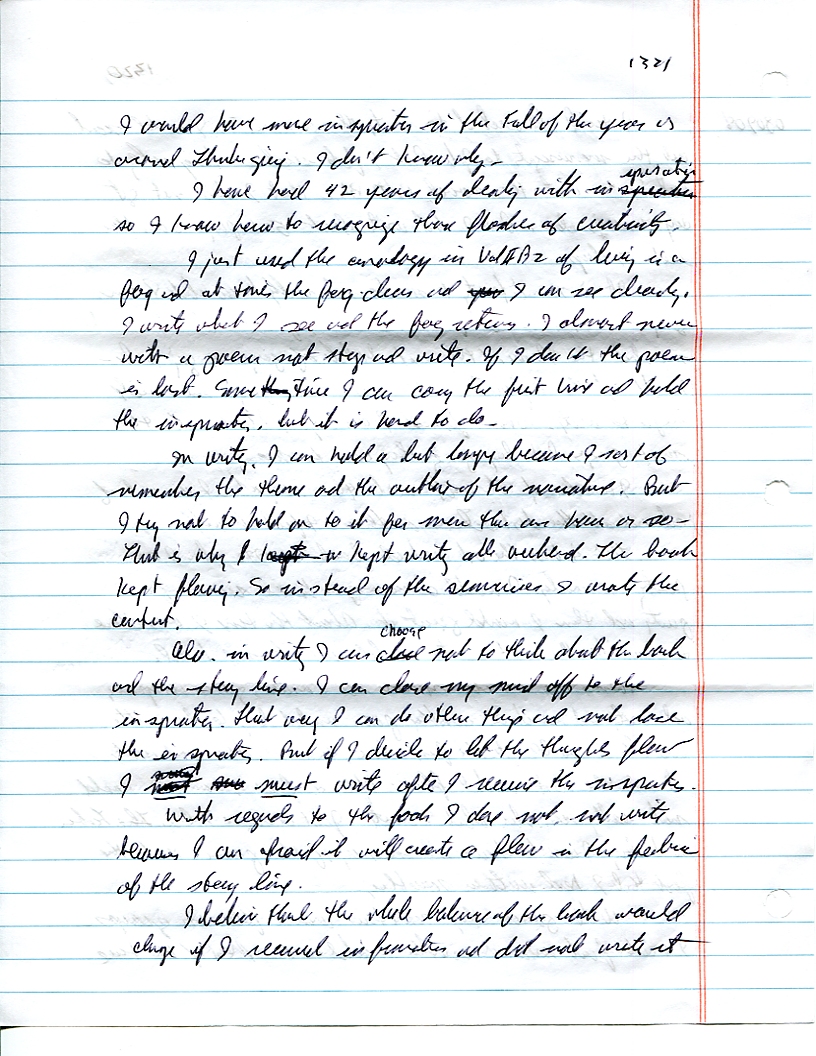 1321
I would have more inspiration in the Fall of the year or
around Thanksgiving. I don't know why -
I have had 42 years of dealing with inspiration
so I know how to recognize those flashes of creativity.
I just used the analogy in Vol II B2 of living is a
fog and at times the fog clears and I can see clearly.
I write what I see and the fog returns. I almost never
with a poem not stop and write. If I don't the poem
is lost. Some time I can carry the first line and hold
the inspiration, but it is hard to do -
In writing, I can hold a bit longer because I sort of
remember the theme and the outline of the narrative. But
I try not to hold on to it for more than an hour or so -
That is why I kept writing all weekend. The book
kept flowing. So instead of the summaries I wrote the
content.
Also, in writing I can choose not to think about the book
and the story line. I can close my mind off to the
inspiration. That way I can do other things and not lose
the inspiration. But if I decide to let the thoughts flow
I must write after I receive the inspiration.
With regards to the book I dare not, not write
because I am afraid it will create a flaw in the fabric
of the story line.
I believe that the whole balance of the book would
change if I received information and did not write it